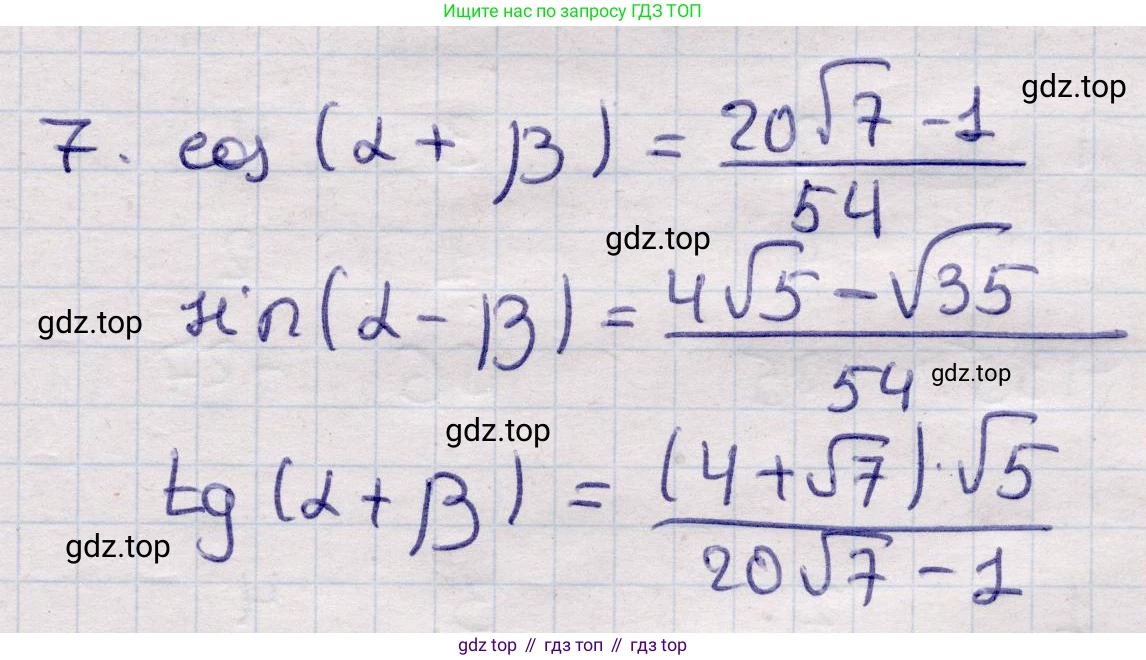 Ищите нас по запросу ГДЗ ТОП
gdz.top
7. cos (α + β) = (20√7 - 1) / 54
gdz.top
gdz.top
sin (α - β) = (4√5 - √35) / 54
gdz.top
gdz.top
tg (α + β) = ((4 + √7) · √5) / (20√7 - 1)
gdz.top
gdz top // гдз топ // gdz top